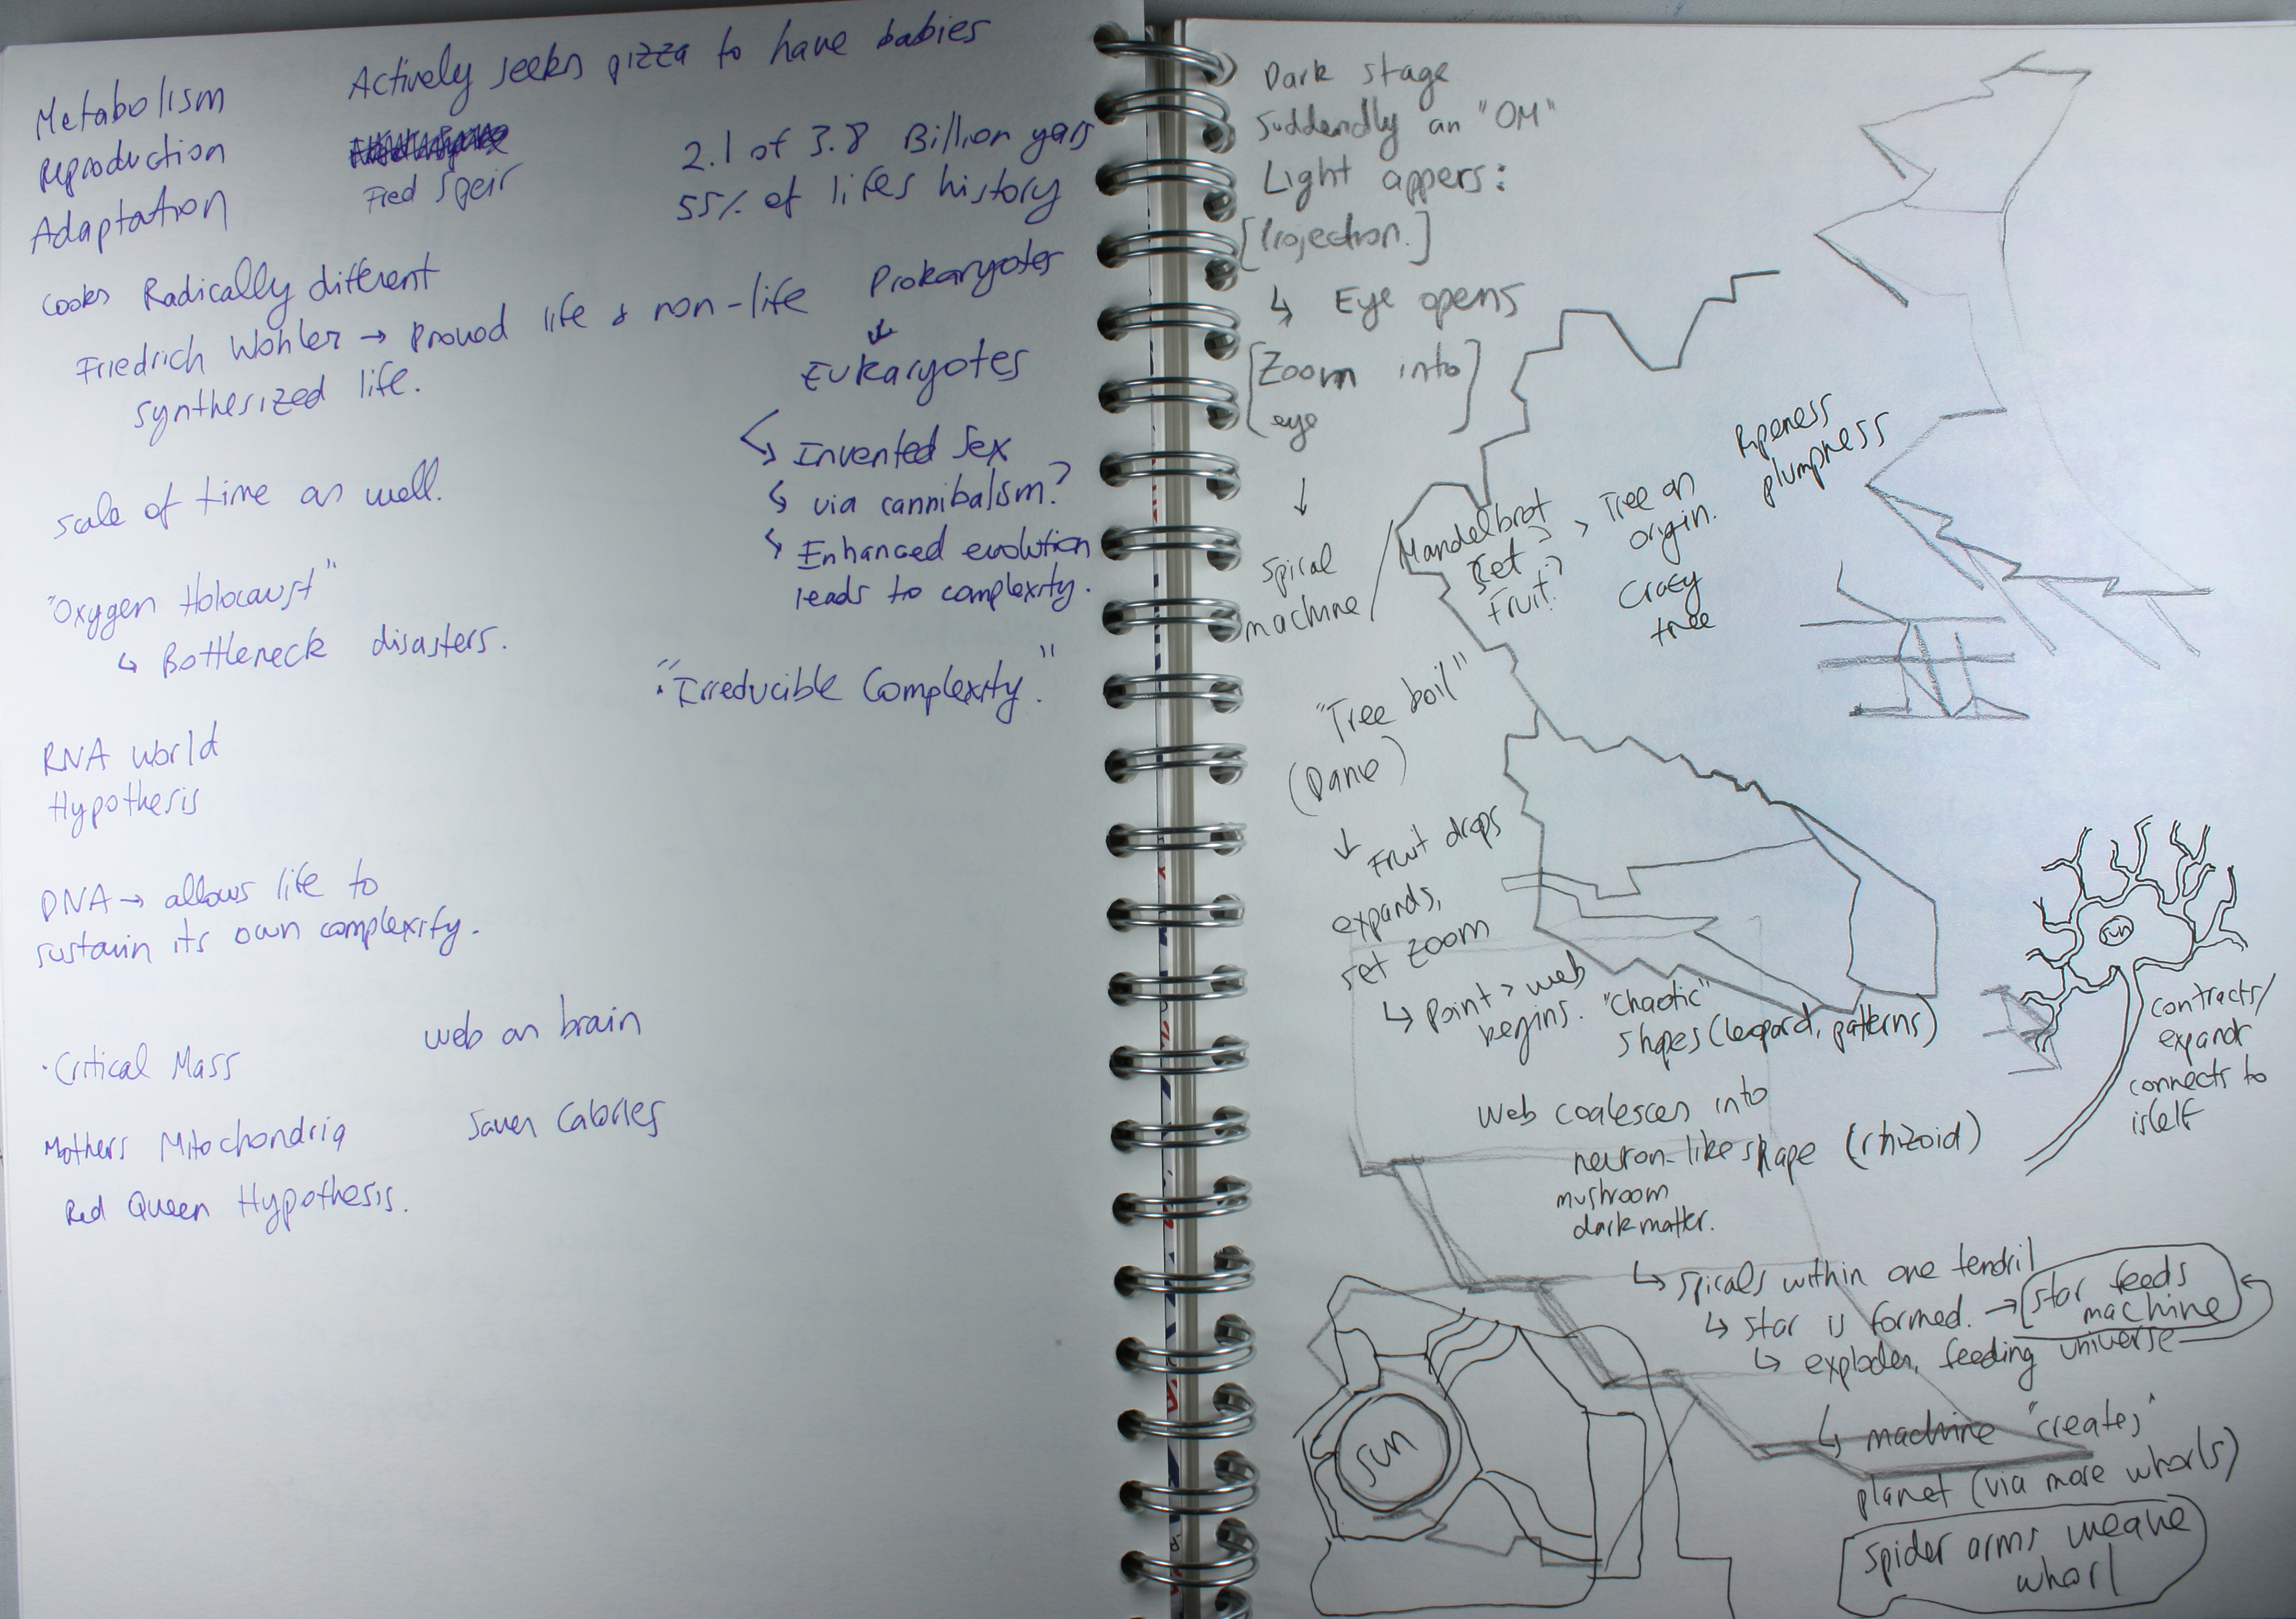 Metabolism
Reproduction
Adaptation
Actively seeks pizza to have babies
Fred Speir
2.1 of 3.8 Billion years
55% of lifes history
Looks Radically different
Friedrich Wohler → Proved life & non-life
synthesized life.
Prokaryotes
↓
Eukaryotes
↳ Invented Sex
↳ via cannibalism?
↳ Enhanced evolution
leads to complexity.
scale of time as well.
"Oxygen Holocaust"
↳ Bottleneck disasters.
"Irreducible Complexity."
RNA world
Hypothesis
DNA → allows life to
sustain its own complexity.
web as brain
· Critical Mass
Mothers Mitochondria
Saves Calories
Red Queen Hypothesis.
Dark stage
Suddendly an "OM"
Light appers:
[Projection.]
↳ Eye opens
[Zoom into]
eye
↓
Spiral
machine /
Mandelbrot
set
fruit?
> Tree as
origin.
Crazy
tree
Ripeness
plumpness
"Tree boil"
(Dance)
↓ Fruit drops
expands,
set zoom
↳ Point > web
begins. "Chaotic"
shapes (leopard, patterns)
sun
contracts/
expands
connects to
itself
Web coalesces into
neuron-like shape (rhizoid)
mushroom
dark matter.
↳ spirals within one tendril
↳ star is formed. → star feeds
machine
↳ explodes, feeding universe
↳ machine "creates"
planet (via more whorls)
spider arms weave
whorl
sun